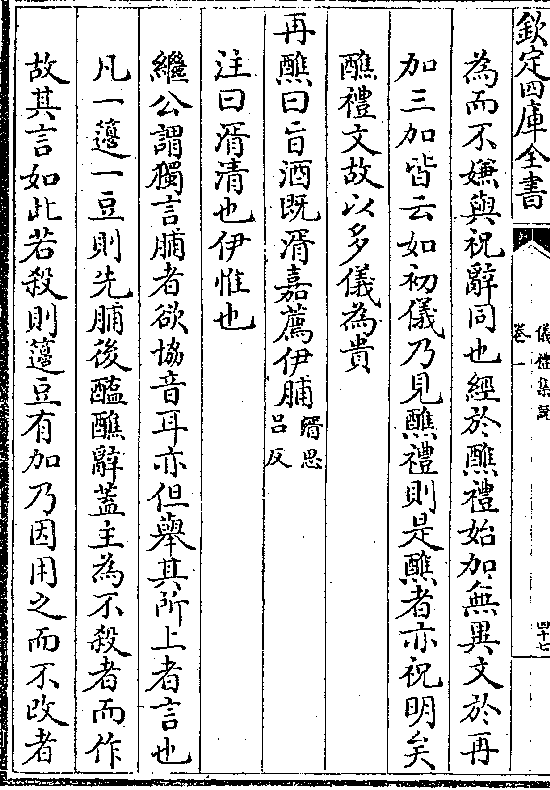 欽定四庫全書
儀禮集說
卷一
四十七
為而不嫌與祝辭同也經於醮禮始加無異文於再
加三加皆云如初儀乃見醮禮則是醮者亦祝明矣
醮禮文故以多儀為貴
再醮曰旨酒既湑嘉薦伊脯湑思呂反
注曰湑清也伊惟也
繼公謂獨言脯者欲協音耳亦但舉其所上者言也
凡一籩一豆則先脯後醢醮辭蓋主為不殺者而作
故其言如此若殺則籩豆有加乃因用之而不改者